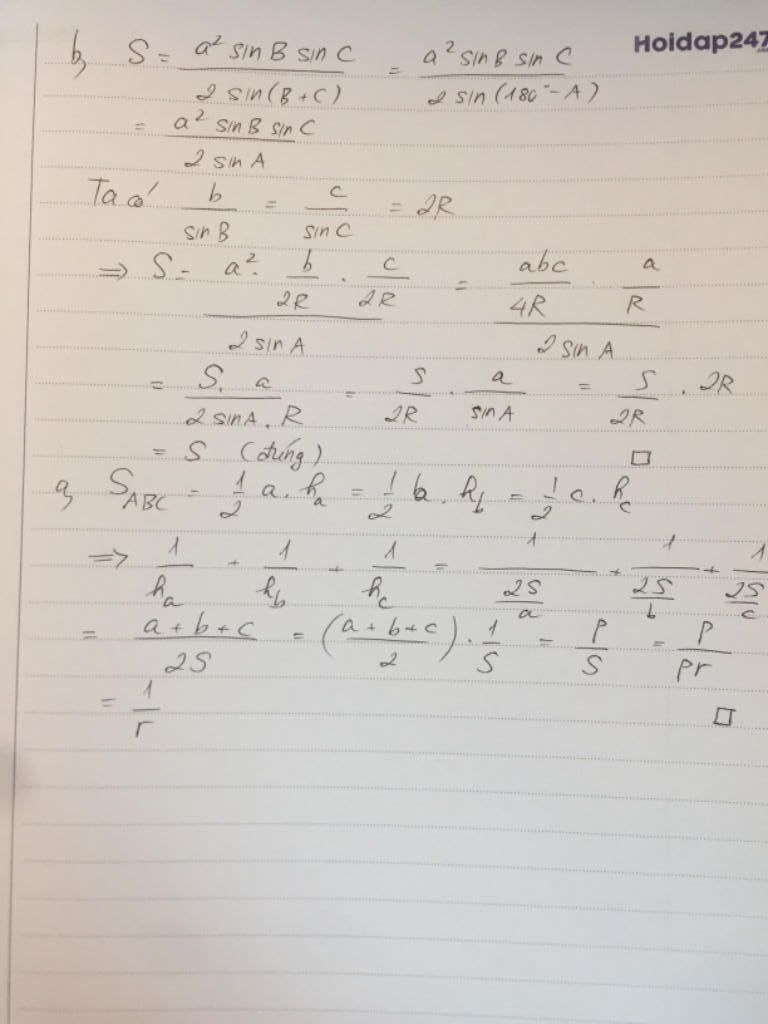 Hoidap247
b, S = a² sin B sin C / 2 sin(B+C) = a² sin B sin C / 2 sin(180° - A)
= a² sin B sin C / 2 sin A
Ta có b / sin B = c / sin C = 2R
=> S = a² . b/2R . c/2R / 2 sin A = abc/4R . a/R / 2 sin A
= S. a / 2 sin A . R = S/2R . a/sin A = S/2R . 2R
= S (đúng) □
a, S_ABC = 1/2 a . h_a = 1/2 b . h_b = 1/2 c . h_c
=> 1/h_a + 1/h_b + 1/h_c = 1/(2S/a) + 1/(2S/b) + 1/(2S/c)
= a+b+c / 2S = (a+b+c / 2) . 1/S = P/S = P/pr
= 1/r □